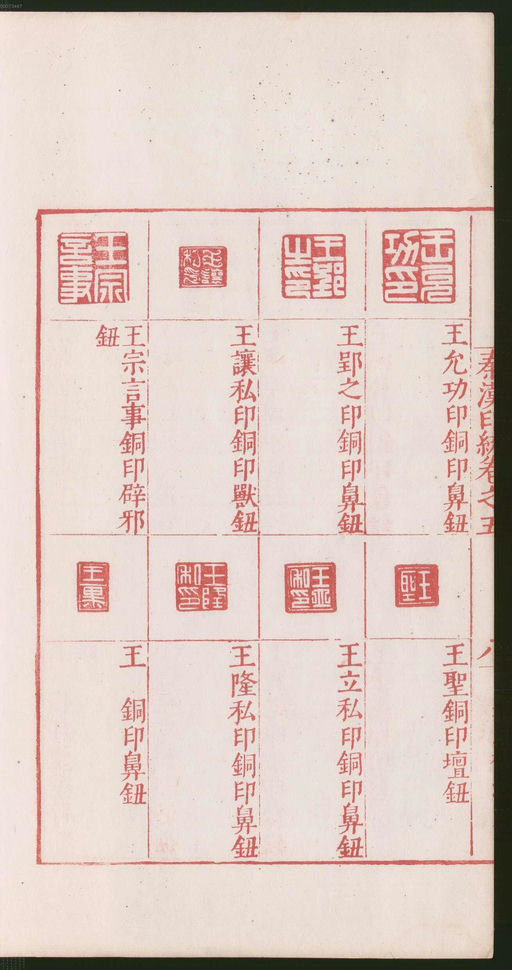 秦漢印統卷之五
八
王允功印銅印鼻鈕
王郢之印銅印鼻鈕
王讓私印銅印獸鈕
王宗言事銅印辟邪
鈕
王聖銅印壇鈕
王立私印銅印鼻鈕
王隆私印銅印鼻鈕
王　銅印鼻鈕